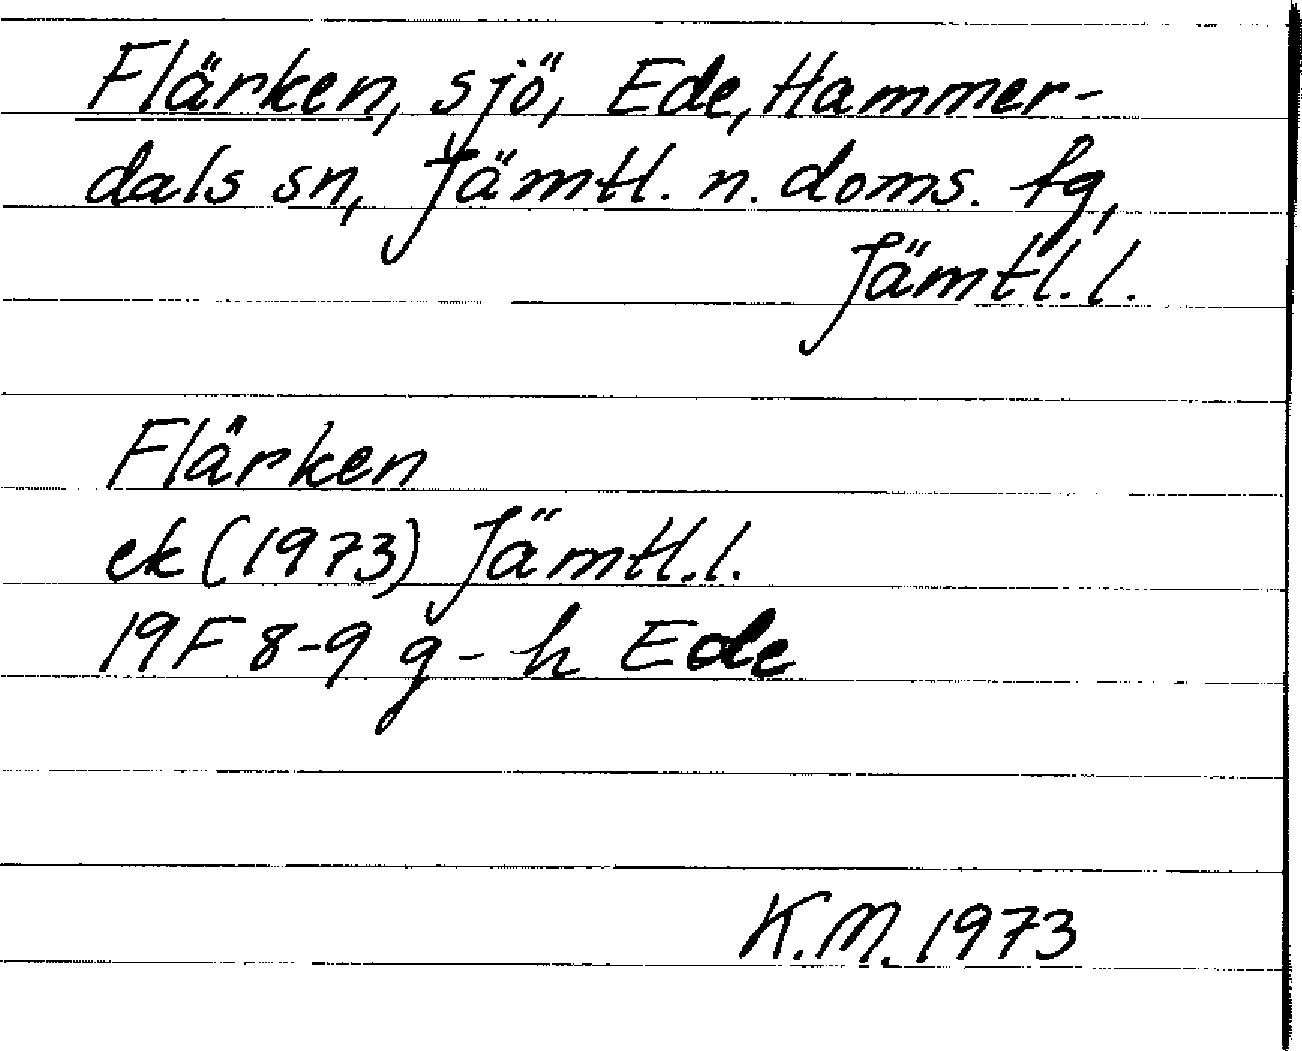 Flärken, sjö, Ede, Hammer-
dals sn, Jämtl. n. doms. fg,
Jämtl. l.
Flärken
ek (1973) Jämtl. l.
19F 8-9 g-h Ede
K.M. 1973